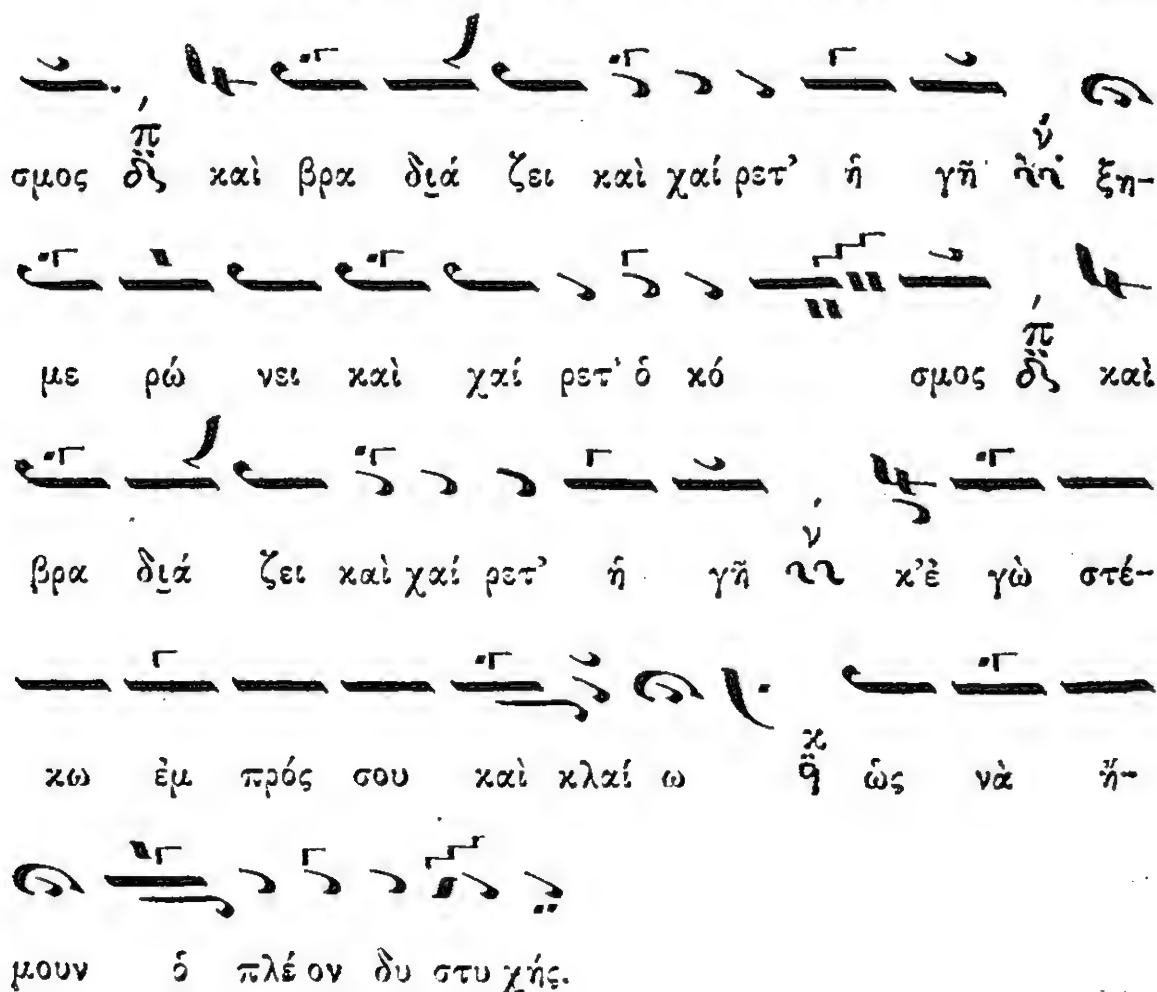 σμος καὶ βρα δι̮ά ζει καὶ χαί ρετ' ἡ γῆ ξη-
με ρώ νει καὶ χαί ρετ' ὁ κό σμος καὶ
βρα δι̮ά ζει καὶ χαί ρετ' ἡ γῆ κ'ἐ γὼ στέ-
κω ἐμ πρός σου καὶ κλαί ω ὡς νὰ ἤ-
μουν ὁ πλέ ον δυ στυ χής.